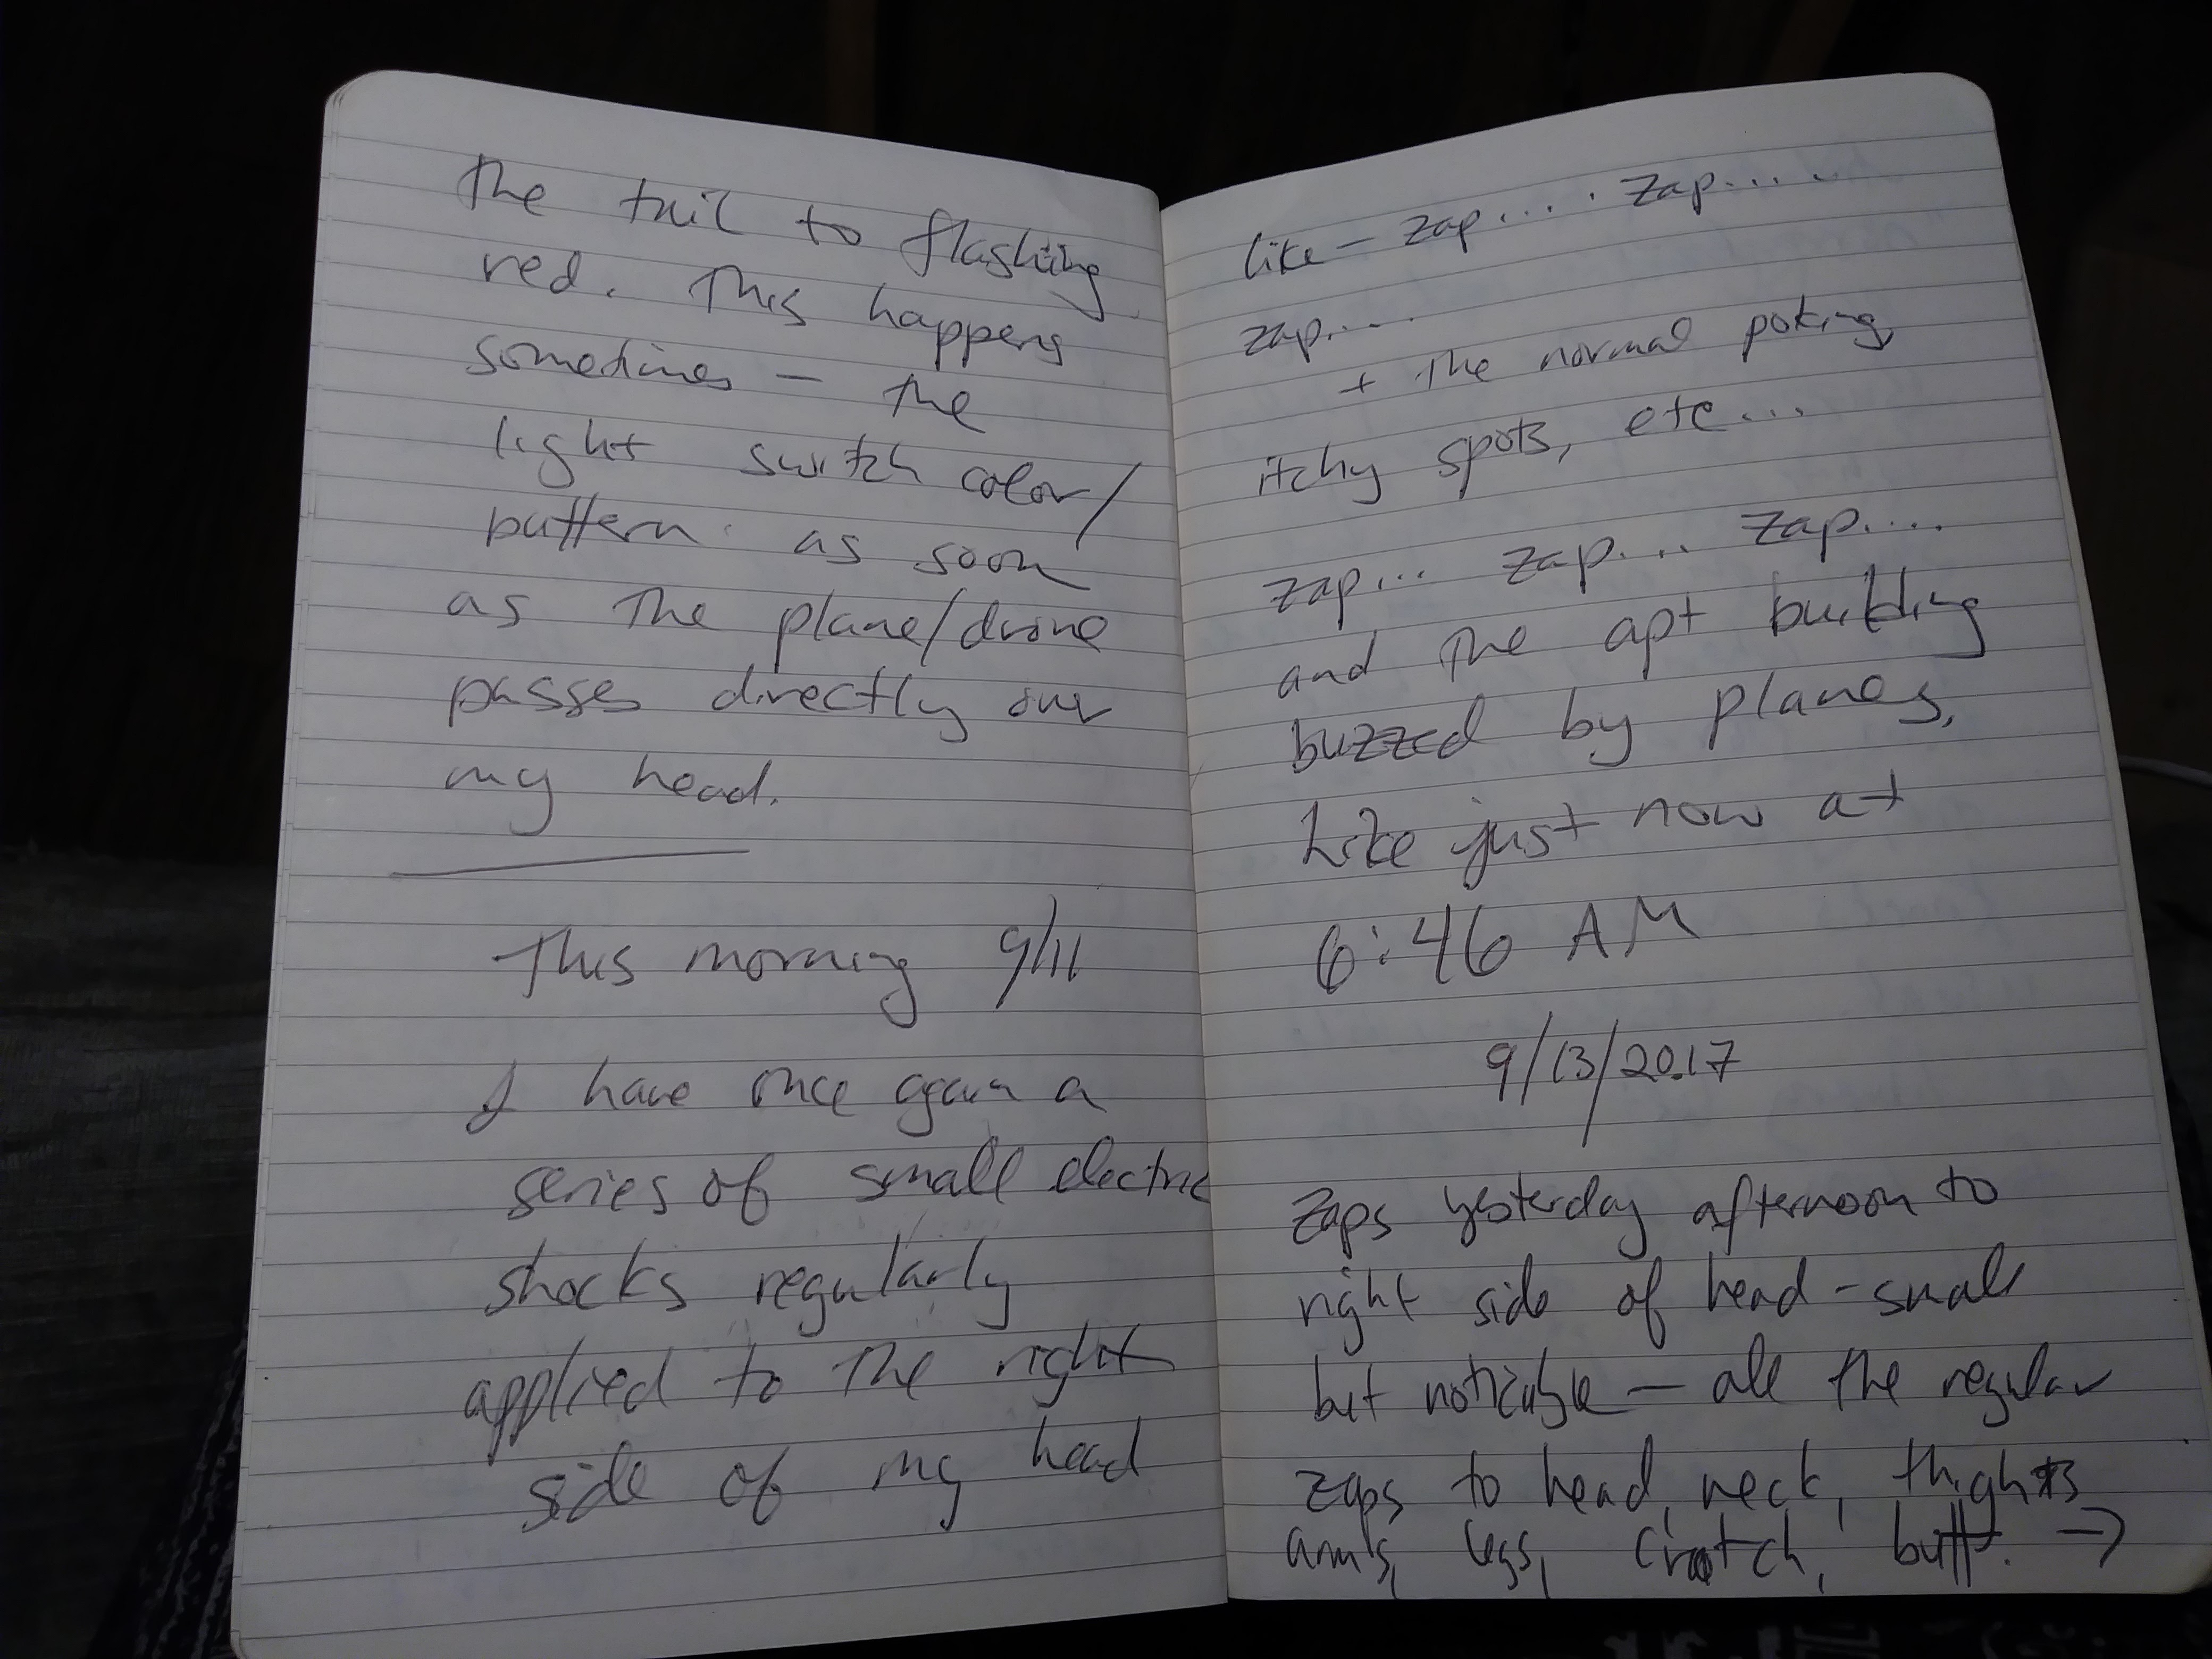 The tail to flashing
red. This happens
sometimes — the
light switch color/
pattern as soon
as the plane/drone
passes directly over
my head.
This morning 9/11
I have once again a
series of small electric
shocks regularly
applied to the right
side of my head
like — zap.... . zap.... ..
zap....
+ the normal poking,
itchy spots, etc...
zap... zap.... zap....
and the apt building
buzzed by planes,
Like just now at
6:46 AM
9/13/2017
Zaps yesterday afternoon to
right side of head - small
but noticable — all the regular
zaps to head, neck, thighs
arms, legs, crotch, butt. →